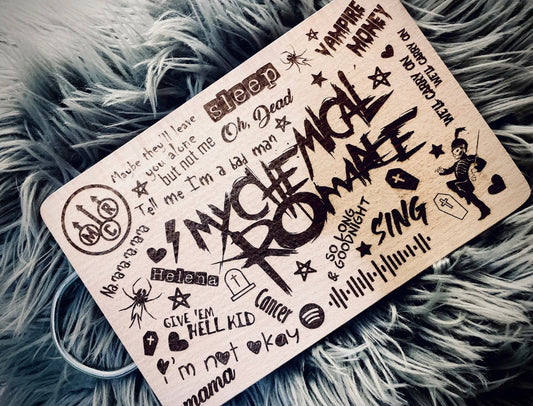 VAMPIRE
MONEY
sleep
WE'LL CARRY ON
WE'LL CARRY ON
Maybe they'll leave
you alone
but not me
Oh, Dead
Tell me I'm a bad man
MY CHEMICAL
ROMANCE
M C R
Na-na-na-na-na
Helena
SO LONG
& GOODNIGHT
SING
Cancer
GIVE 'EM
HELL KID
i'm not okay
mama